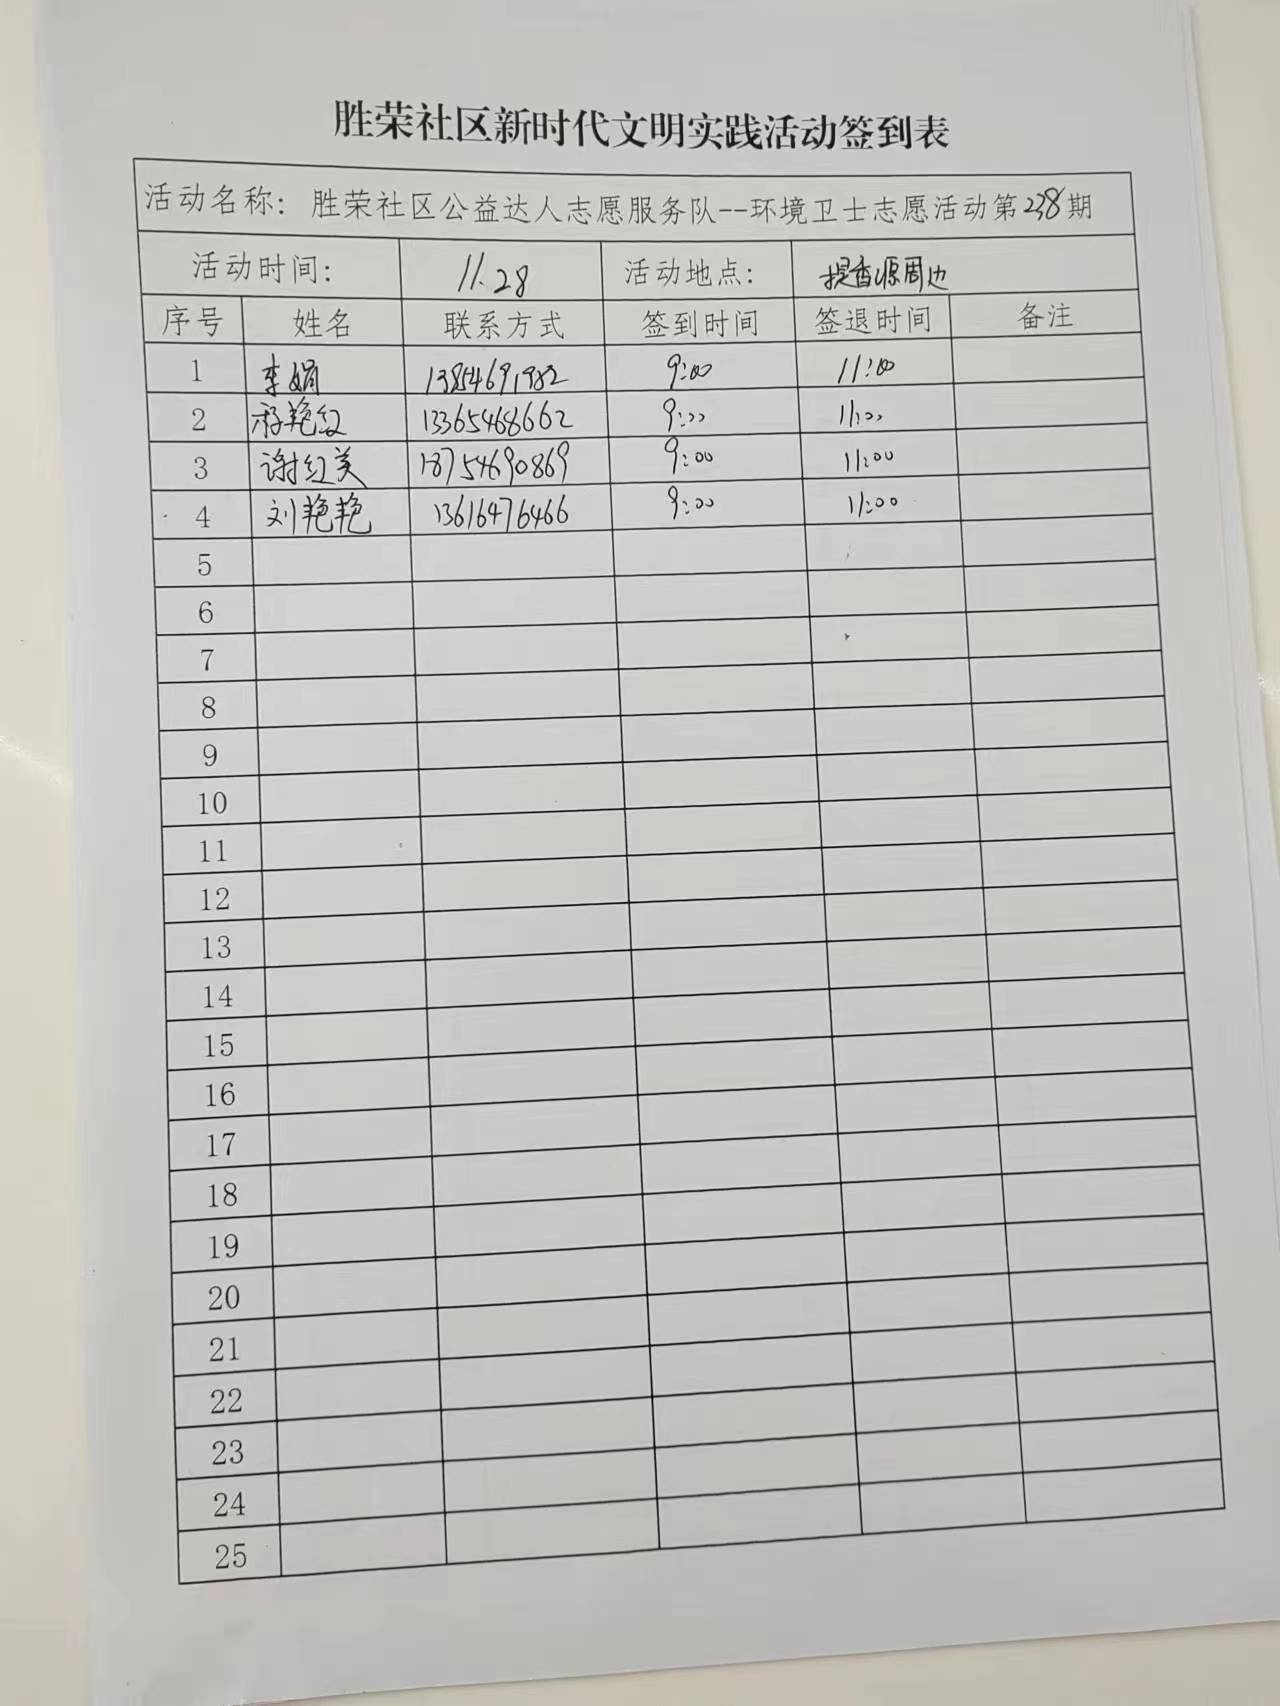 胜荣社区新时代文明实践活动签到表
活动名称：胜荣社区公益达人志愿服务队--环境卫士志愿活动第238期
活动时间： 11.28 活动地点： 提香源周边
序号 姓名 联系方式 签到时间 签退时间 备注
1 李娟 13854691982 9:00 11:00
2 艳红 13365468662 9:00 11:00
3 谢红美 18754690869 9:00 11:00
4 刘艳艳 13616476466 9:00 11:00
5
6
7
8
9
10
11
12
13
14
15
16
17
18
19
20
21
22
23
24
25